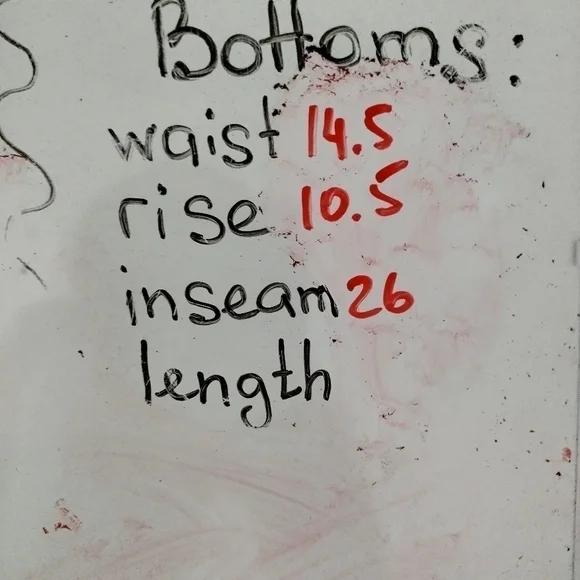 Bottoms:
waist 14.5
rise 10.5
inseam 26
length